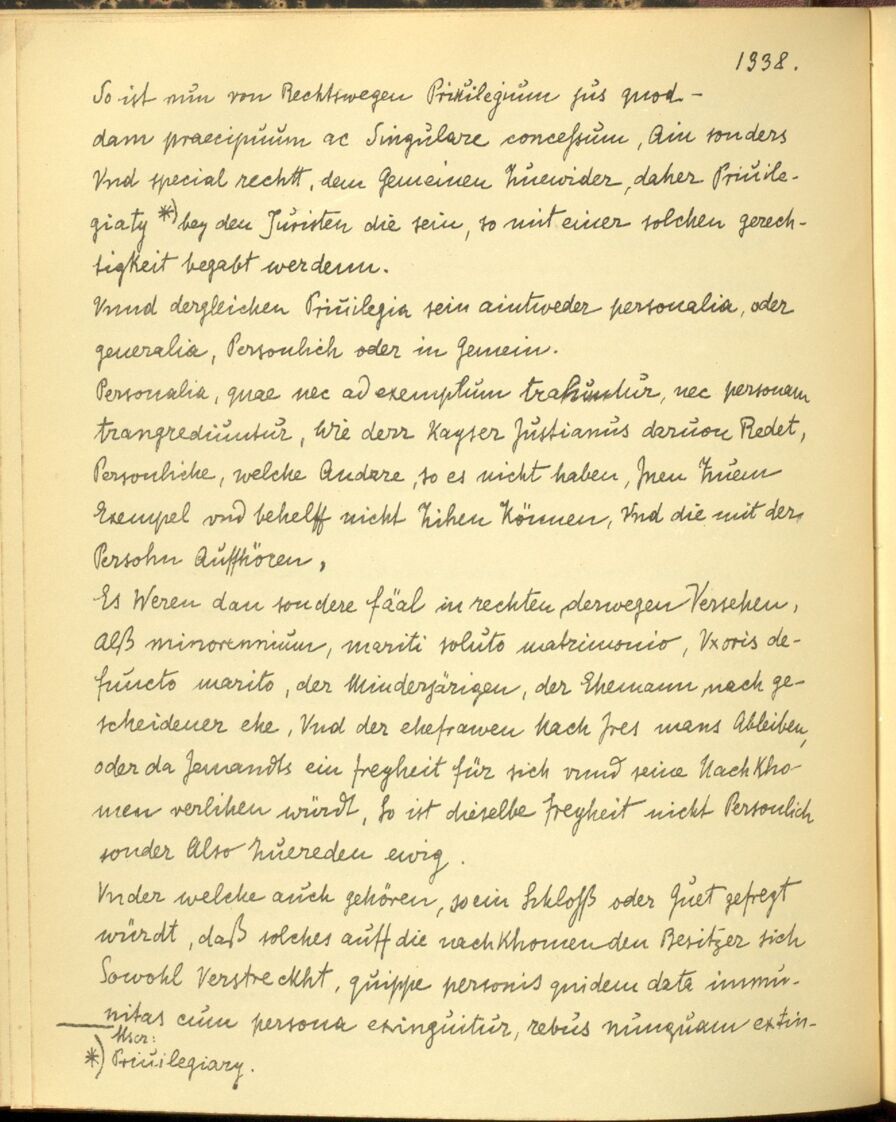 1338.
So ist nun von Rechtswegen Priuilegium jus quod-
dam praecipuum ac Singulare concessum, Ain sonders
Vnd special rechtt, dem Gemeinen Zuewider, daher Priuile-
giaty *) bey den Juristen die sein, so mit einer solchen gerech-
tigkeit begabt werdenn.
Vnnd dergleichen Priuilegia sein aintweder personalia, oder
generalia, Personlich oder in Gemein.
Personalia, quae nec ad exemptum trahuntur, nec personam
trangrediuntur, Wie derr Kayser Justianus daruon Redet,
Personliche, welche Andere, so es nicht haben, Jnen Zuem
Exempel vnd behelff nicht Zihen Können, Vnd die mit der
Persohn Auffhören,
Es Weren dan sondere fääl in rechten derwegen Versehen,
Alß minorennium, mariti soluto matrimonio, Vxoris de-
functo marito, der Minderjärigen, der Ehemann nach ge-
scheidener ehe, Vnd der ehefrawen Nach Jres mans Ableiben,
oder da Jemandts ein freyheit für sich vnnd seine NachKho-
men verlihen würdt, So ist dieselbe freyheit nicht Personlich
sonder Also Zuereden ewig.
Vnder welche auch gehören, so ein Schloß oder Guet gefreyt
würdt, daß solches auff die nachKhomenden Besitzer sich
Sowohl Verstreckht, quippe personis quidem data immu-
nitas cum persona exinguitur, rebus nunquam extin-
Mscr:
*) Priuilegiary.